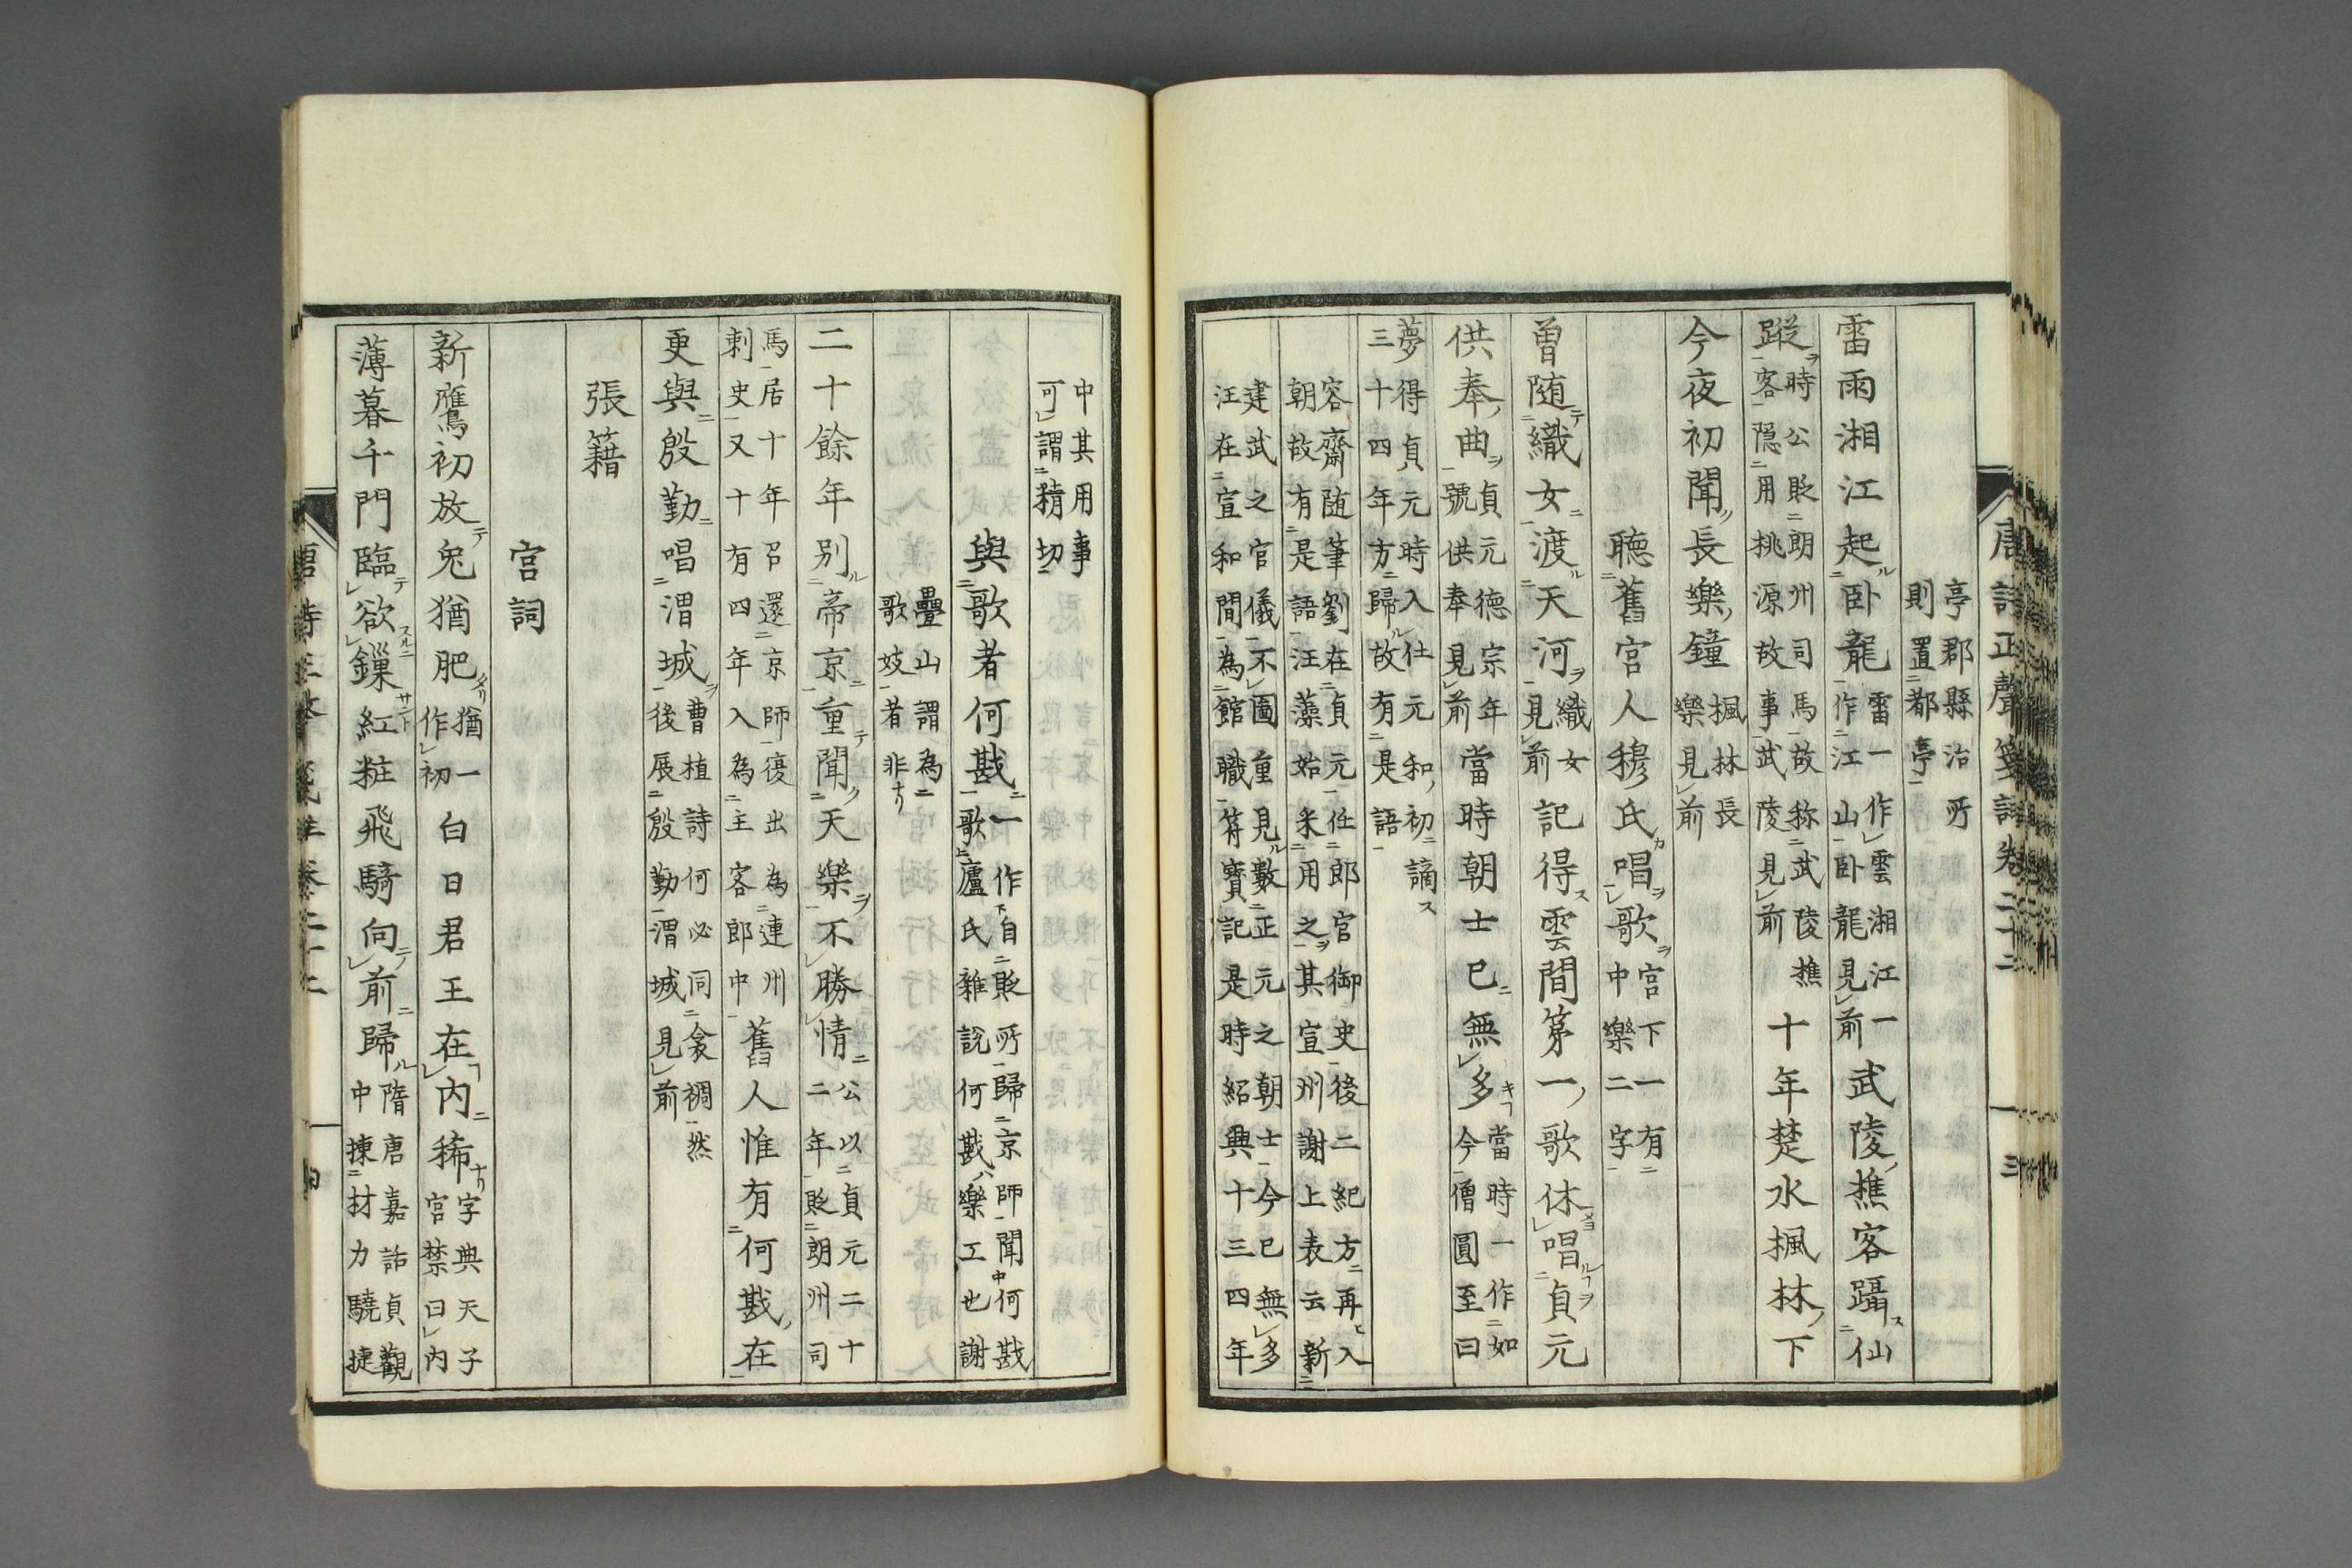 亭郡縣治所
則置都亭
雷雨湘江起卧龍雷一作雲湘江一作江山卧龍見前武陵樵客躡仙
蹤時公貶朗州司馬故称武陵樵客隠用桃源故事武陵見前十年楚水楓林下
今夜初聞長樂鐘楓林長樂見前
聴舊宮人穆氏唱歌宮下一有中樂二字
曽随織女渡天河織女見前記得雲間第一歌休唱貞元
供奉曲貞元德宗年號供奉見前當時朝士已無多當時一作如今僧圓至曰
夢得貞元時入仕元和初謫
三十四年方歸故有是語
容齋随筆劉在貞元任郎官御史後二紀方再入
朝故有是語汪藻始采用之其宣州謝上表云新
建武之官儀不圖重見數正元之朝士今已無多
汪在宣和間為館職符寶記是時紹興十三四年
唐詩正聲箋註卷二十二 三
中其用事
可謂精切
與歌者何戡一作自貶所歸京師聞何戡歌廬氏雜説何戡樂工也謝
疊山謂為
歌妓者非
二十餘年別帝京重聞天樂不勝情公以貞元二十二年貶朗州司
馬居十年召還京師復出為連州刺史又十有四年入為主客郎中舊人惟有何戡在
更與殷勤唱渭城曹植詩何必同衾裯然後展殷勤渭城見前
張籍
宮詞
新鷹初放兔猶肥猶一作初白日君王在内稀字典天子宮禁曰内
薄暮千門臨欲鏁紅粧飛騎向前歸隋唐嘉話貞觀中揀材力驍捷